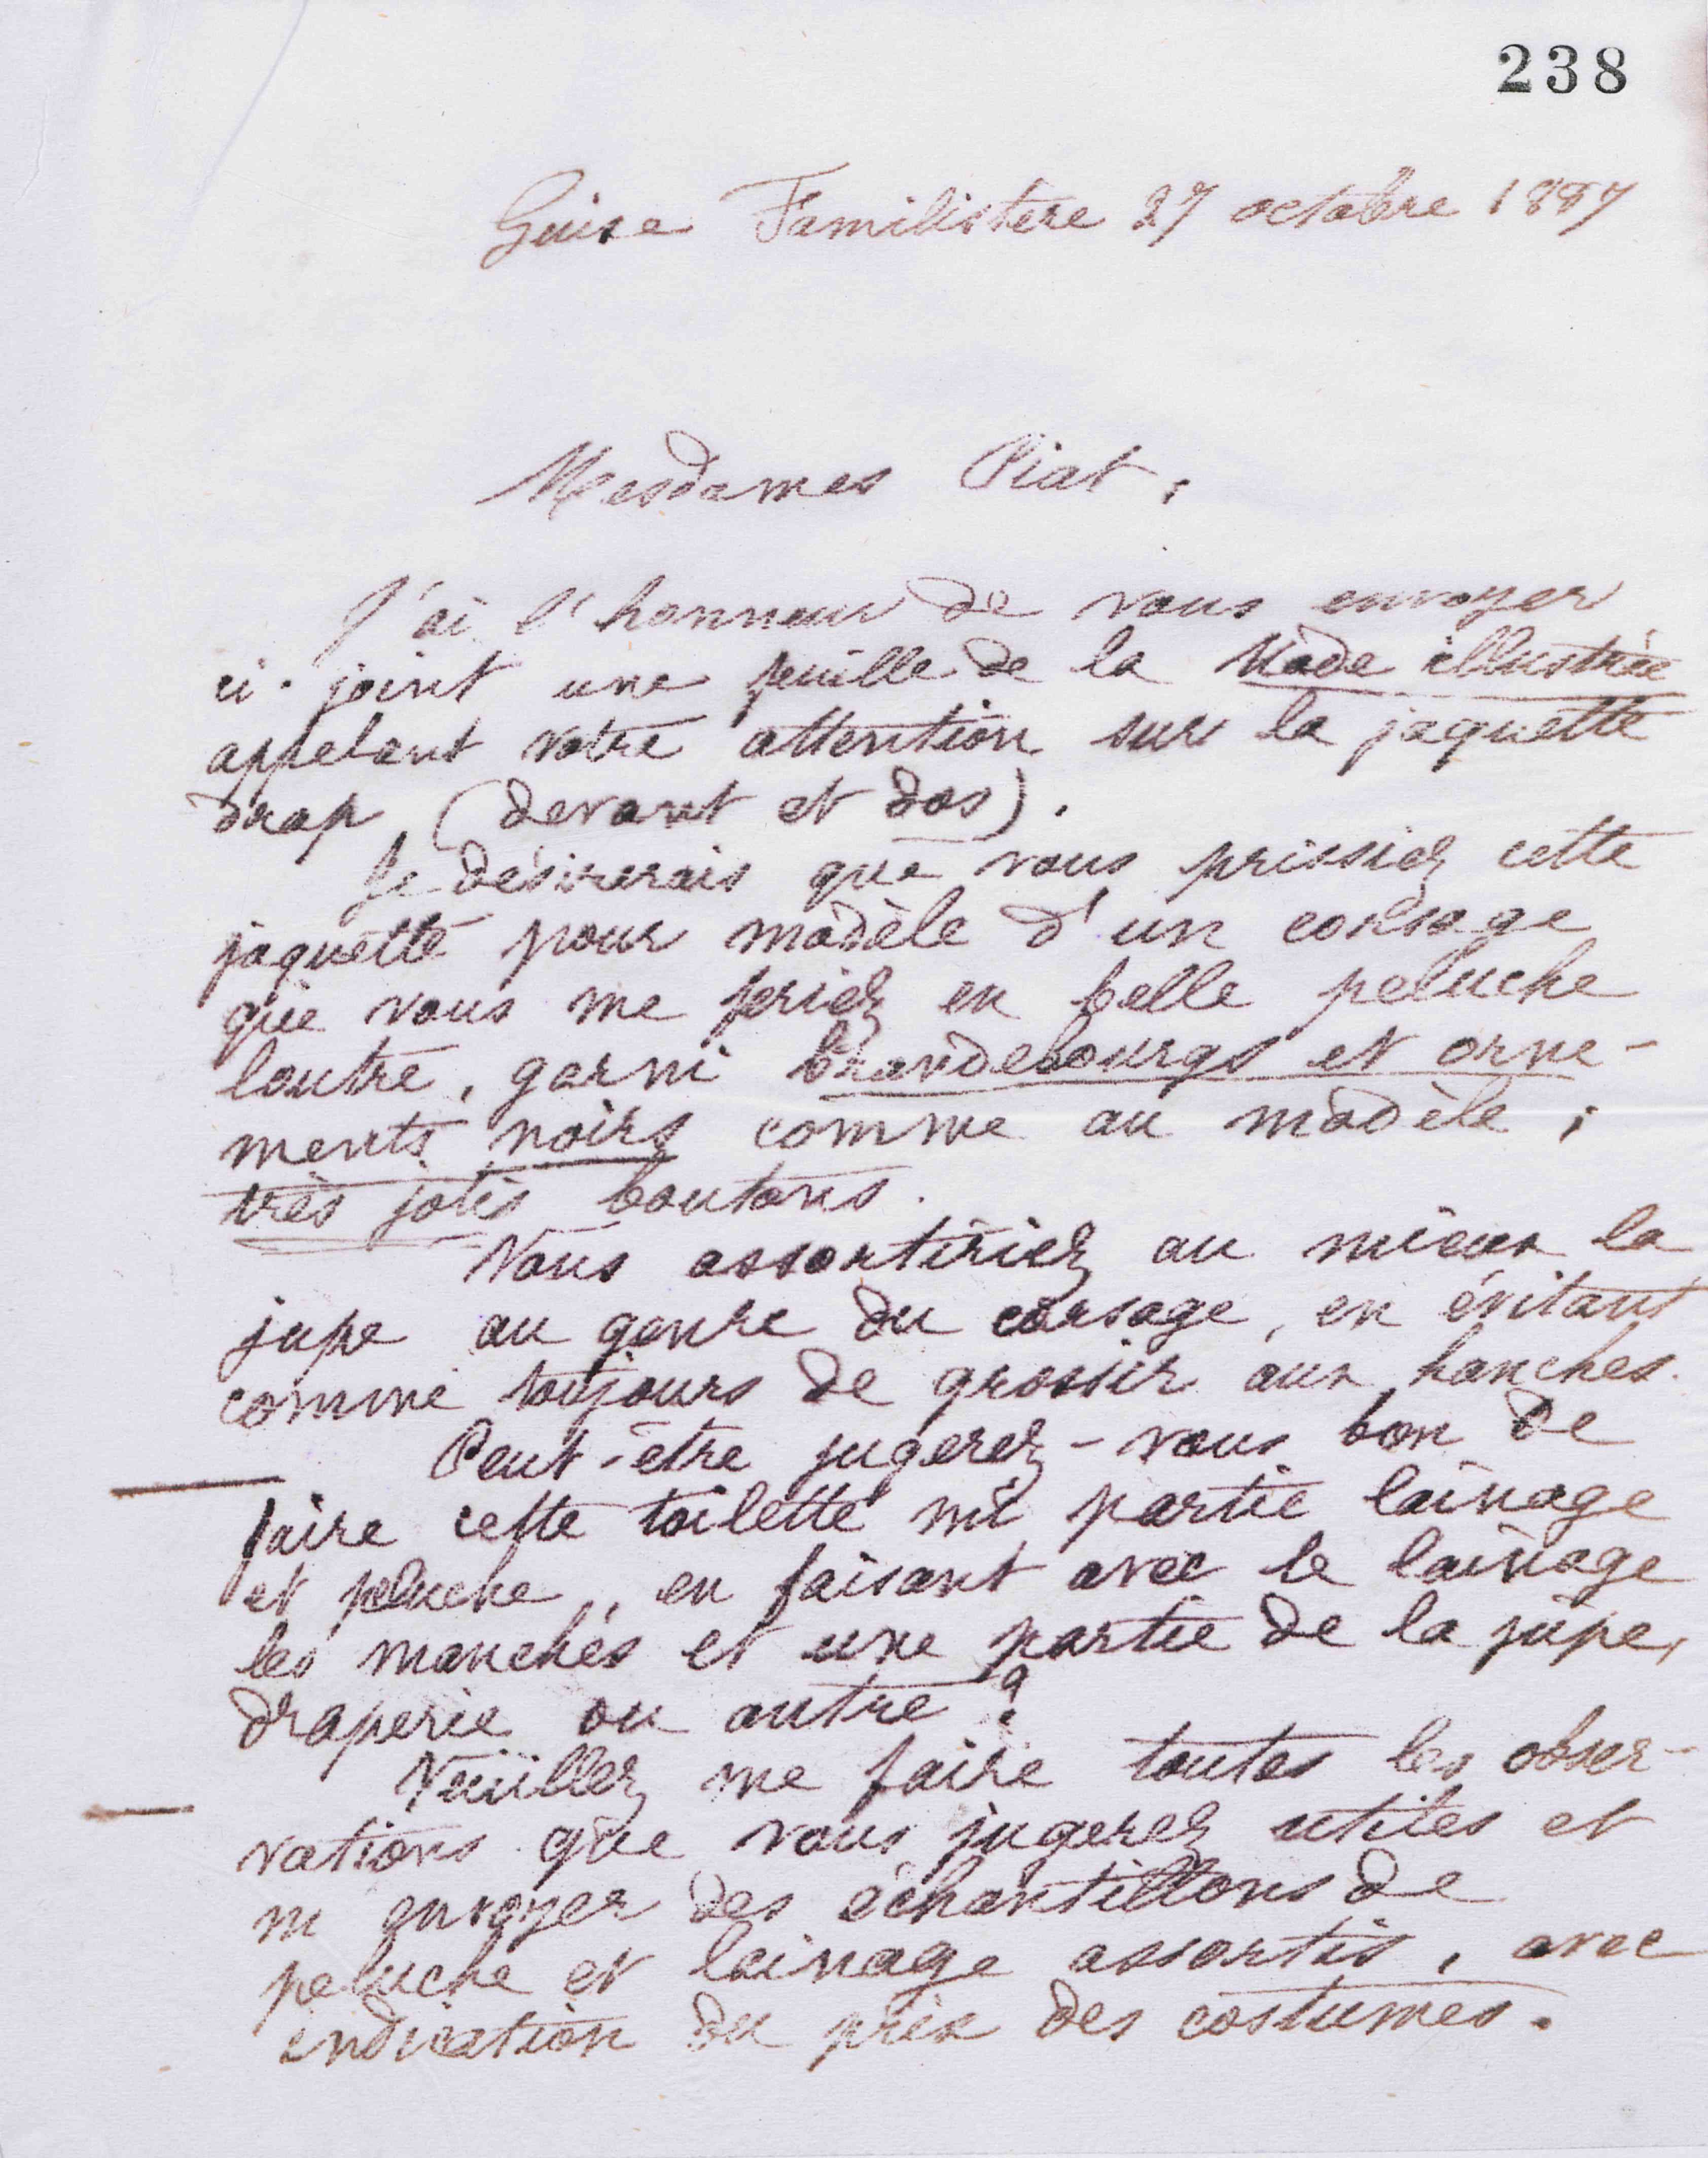 238
Guise Familistère 27 octobre 1887
Mesdames Piat,
J'ai l'honneur de vous envoyer
ci-joint une feuille de la Mode illustrée
appelant votre attention sur la jaquette
drap, (devant et dos).
Je désirerais que vous prissiez cette
jaquette pour modèle d'un corsage
que vous me feriez en belle peluche
loutre, garni brandebourgs et orne-
ments noirs comme au modèle ;
très jolis boutons.
Vous assortiriez au mieux la
jupe au genre du corsage, en évitant
comme toujours de grossir aux hanches.
Peut-être jugerez-vous bon de
faire cette toilette mi partie lainage
et peluche, en faisant avec le lainage
les manches et une partie de la jupe,
draperie ou autre ?
Veuillez me faire toutes les obser-
vations que vous jugerez utiles et
m'envoyer des échantillons de
peluche et lainage assortis, avec
indication du prix des costumes.